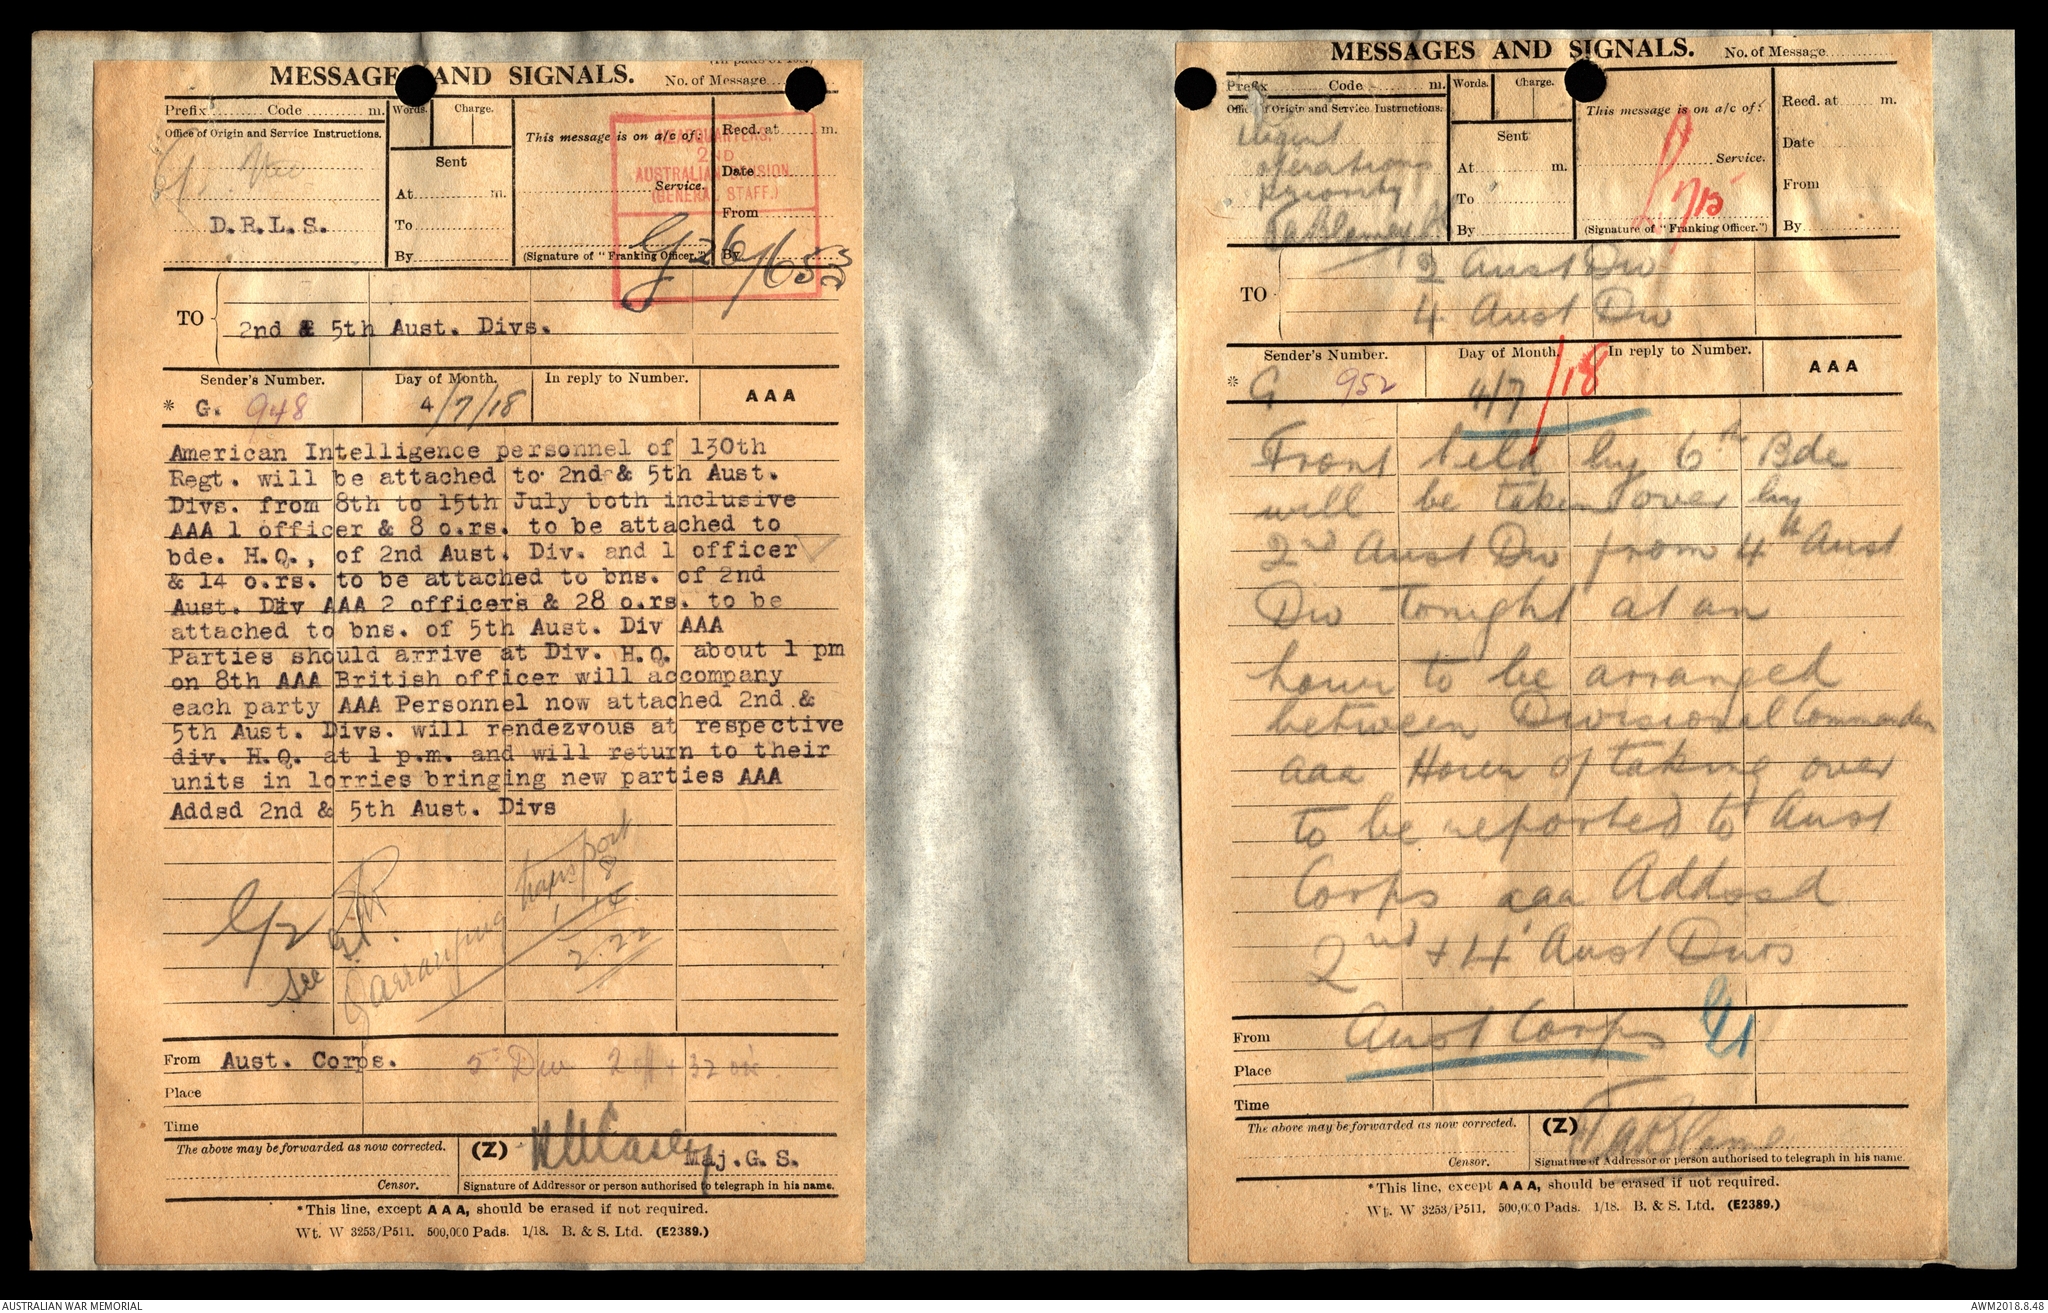 MESSAGES AND SIGNALS.
No. of Message
Prefix Code m.
Words.
Charge.
Office of Origin and Service Instructions.
D.R.L.S.
Sent
At m.
To
By
This message is on a/c of:
Service.
(Signature of "Franking Officer.")
Recd. at m.
Date
From
By
HEADQUARTERS,
2ND
AUSTRALIAN DIVISION
(GENERAL STAFF.)
G26/653
TO
2nd & 5th Aust. Divs.
Sender's Number.
Day of Month.
In reply to Number.
AAA
* G. 948
4/7/18
American Intelligence personnel of 130th
Regt. will be attached to 2nd & 5th Aust.
Divs. from 8th to 15th July both inclusive
AAA 1 officer & 8 o.rs. to be attached to
bde. H.Q., of 2nd Aust. Div. and 1 officer
& 14 o.rs. to be attached to bns. of 2nd
Aust. Div AAA 2 officers & 28 o.rs. to be
attached to bns. of 5th Aust. Div AAA
Parties should arrive at Div. H.Q. about 1 pm
on 8th AAA British officer will accompany
each party AAA Personnel now attached 2nd &
5th Aust. Divs. will rendezvous at respective
div. H.Q. at 1 p.m. and will return to their
units in lorries bringing new parties AAA
Addsd 2nd & 5th Aust. Divs
see
arranging transport
8
1 14
2.22
From Aust. Corps.
5 Div 2 off + 32 ors.
Place
Time
The above may be forwarded as now corrected.
(Z)
Maj.G.S.
Censor.
Signature of Addressor or person authorised to telegraph in his name.
*This line, except AAA, should be erased if not required.
Wt. W 3253/P511. 500,000 Pads. 1/18. B. & S. Ltd. (E2389.)
MESSAGES AND SIGNALS.
No. of Message
Prefix Code m.
Words.
Charge.
Office of Origin and Service Instructions.
Urgent
operations
priority
TaBlamey
Sent
At m.
To
By
This message is on a/c of:
Service.
(Signature of "Franking Officer.")
Recd. at m.
Date
From
By
TO
2 Aust Div
4 Aust Div
Sender's Number.
Day of Month.
In reply to Number.
AAA
* G 952
4/7/18
Front held by 6th Bde
will be taken over by
2nd Aust Div from 4th Aust
Div tonight at an
hour to be arranged
between Divisional Commanders
aaa Hour of taking over
to be reported to Aust
Corps aaa Addssd
2nd + 4 Aust Divs
From Aust Corps
G1
Place
Time
The above may be forwarded as now corrected.
(Z) TaBlamey
Censor.
Signature of Addressor or person authorised to telegraph in his name.
*This line, except AAA, should be erased if not required.
Wt. W 3253/P511. 500,000 Pads. 1/18. B. & S. Ltd. (E2389.)
AUSTRALIAN WAR MEMORIAL
AWM2018.8.48